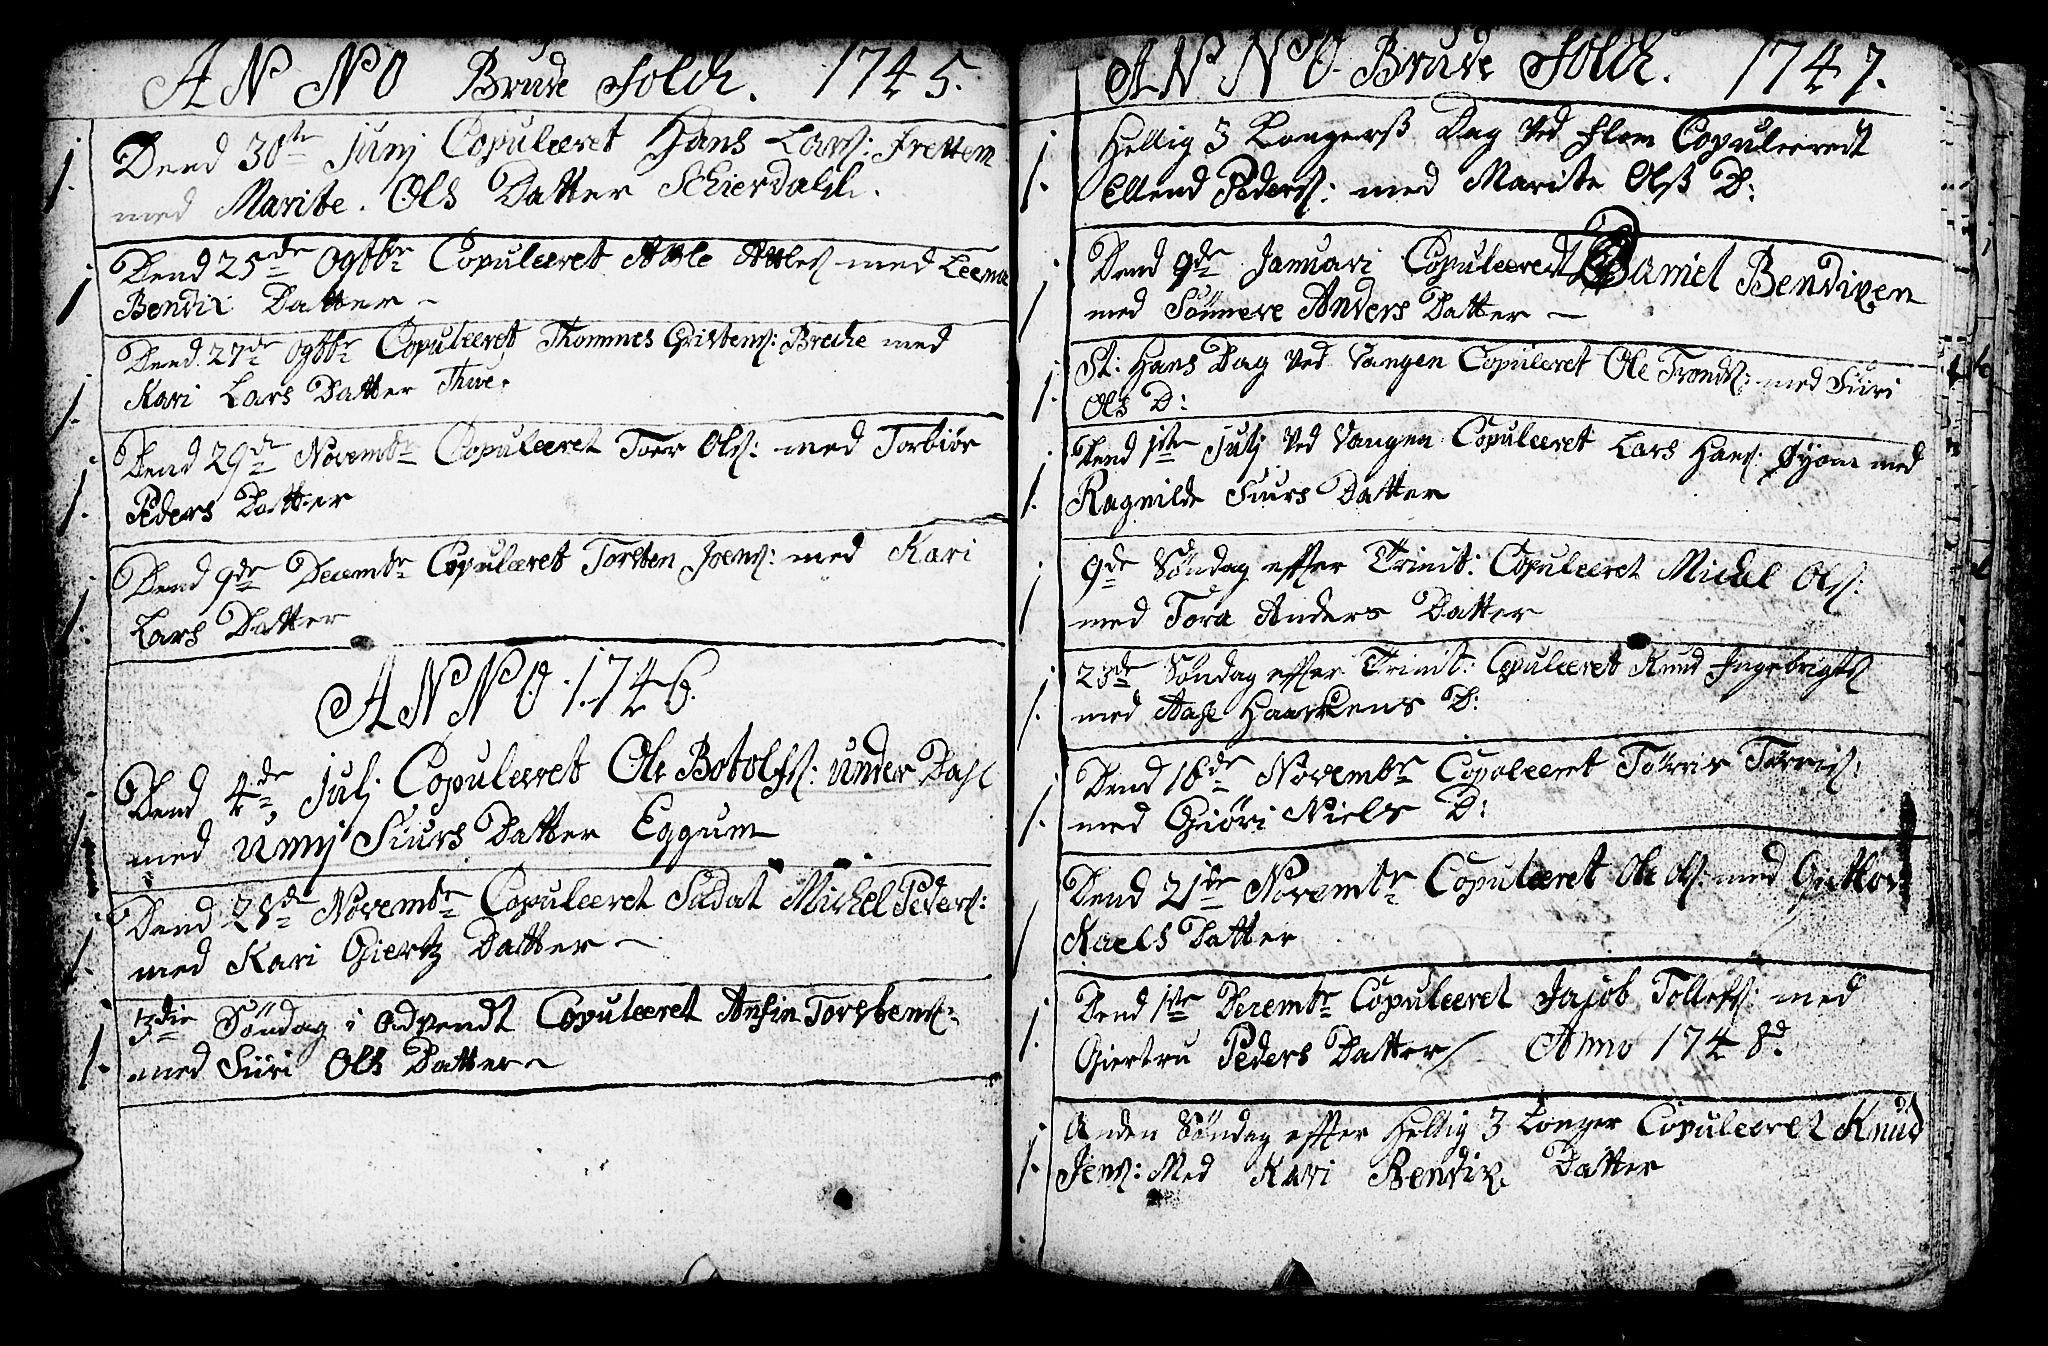 ANNO Brude Folck. 1745.
1. Dend 30te Junj Copuleret Hans Lars: Frettem
med Marite. Ols Datter Schierdahl.
1 Dend 25de Ogtbr Copuleret Atle Atles med Leema
Bendix Datter –
1. Dend 27de Ogtbr Copuleret Thommes Cristens: Breche med
Kari Lars Datter Thue.
1. Dend 29de Novembr Copuleret Toer Ols: med Torbiør
Peders Datter
1. Dend 9de Decembr Copuleret Torsten Joens: med Kari
Lars Datter
ANNO. 1746.
1. Dend 4de Julj Copuleret Ole Botolfs: under Dahl
med Unnj Siurs Datter Eggum
1. Dend 28de Novembr Copuleret Saldat Michel Peders:
med Kari Giertz Datter –
1. 3die Söndag i Advendt Copuleret Ansin Torstens:
med Siiri Ols Datter –
ANNO. Brude Folck. 1747.
1. Hellig 3 Kongerß Dag ved Flom Copuleeredt
Ellend Peders: med Marite Olß D:
1 Dend 9de Januari Copuleeredt Daniel Bendixen
med Sünneve Anders Datter –
1. St: Hans Dag ved Vangen Copuleret Ole Tronds: med Siiri
Ols D:
1. Dend 1ste Julj ved Vangen Copuleret Lars Hans: Øyom med
Ragnilde Siurs Datter
1 9de Søndag effter Trinit: Copuleret Michel Ols:
med Tora Anders Datter
1. 23de Søndag effter Trinit: Copuleret Knud Ingebrigts
med Aase Haackens D:
1. Dend 16de Novembr Copoleret Törris Törris:
med Giöri Niels D:
1 Dend 21de Novembr Copuleret Ole Ols: med Guttlov
Kaels Datter
1. Dend 1ste Decembr Copuleret Jajob Tollefs: med
Giertru Peders Datter / Anno 1748d.
1. Anden Søndag effter Hellig 3 Konger Copuleret Knud
Jens: Med Kari Bendix Datter